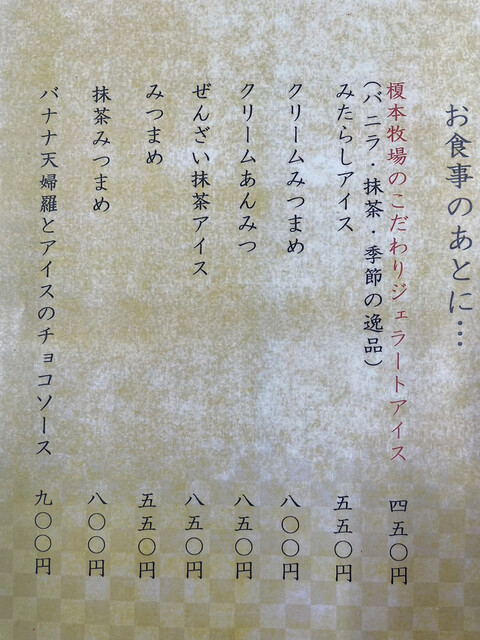 お食事のあとに…
榎本牧場のこだわりジェラートアイス 四五〇円
(バニラ・抹茶・季節の逸品)
みたらしアイス 五五〇円
クリームみつまめ 八〇〇円
クリームあんみつ 八五〇円
ぜんざい抹茶アイス 八五〇円
みつまめ 五五〇円
抹茶みつまめ 八〇〇円
バナナ天婦羅とアイスのチョコソース 九〇〇円